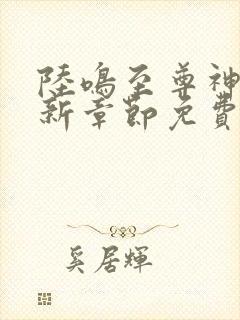 陸鳴至尊神
新章節免費
奚居輝